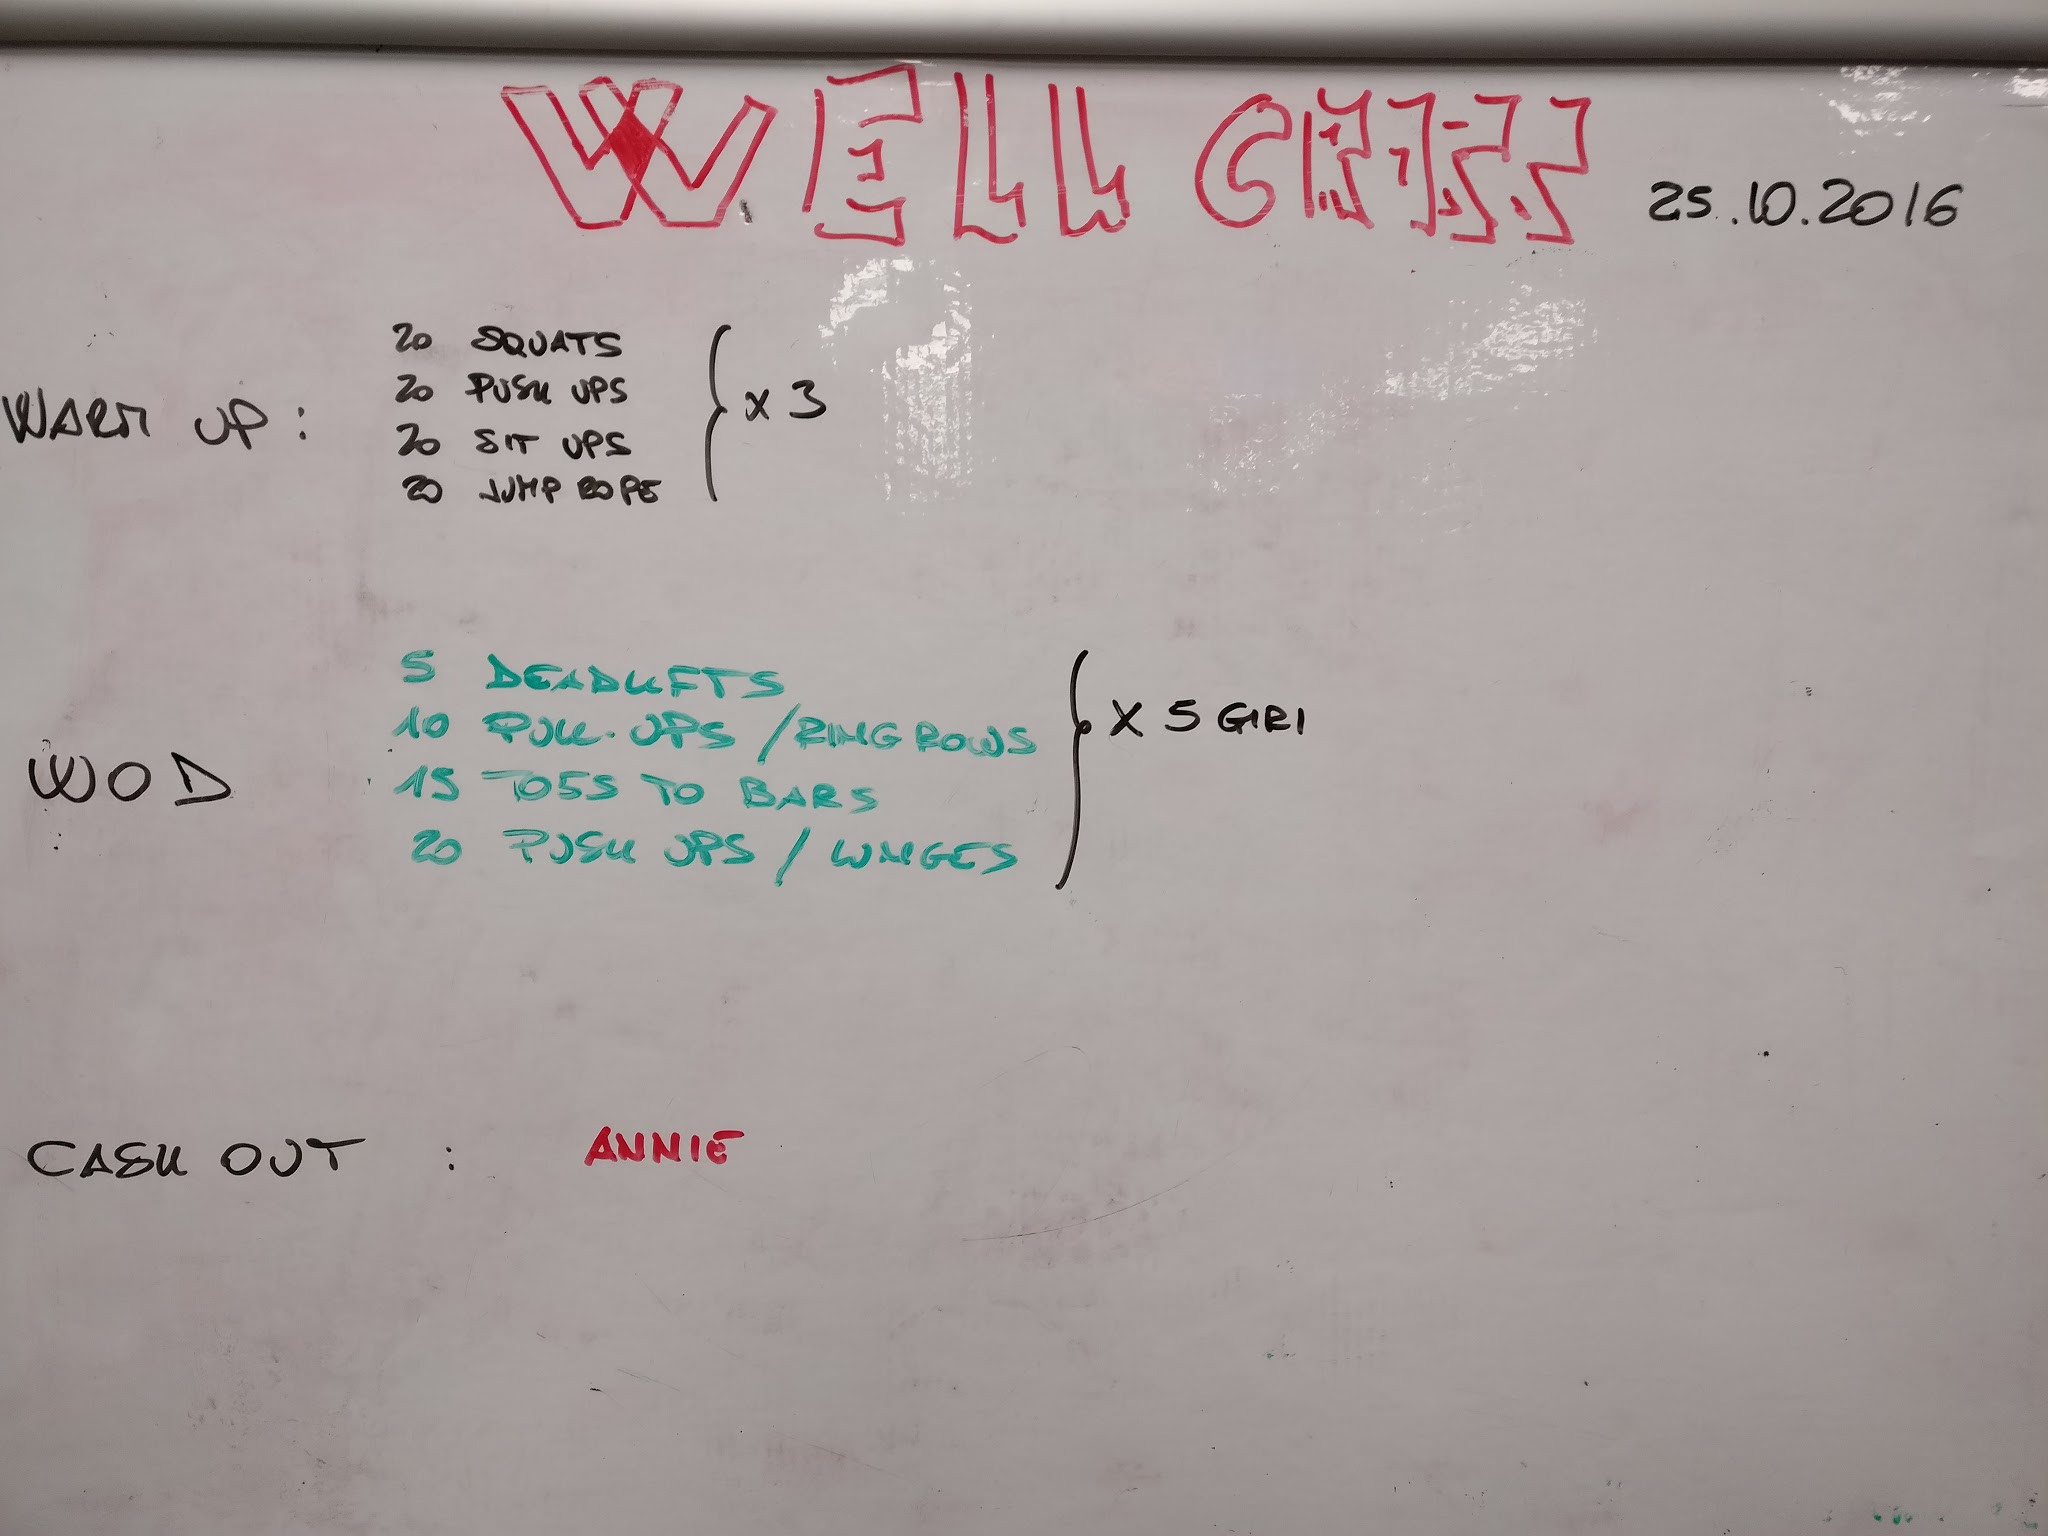 WELL CROSS 25.10.2016
WARM UP:
20 SQUATS
20 PUSH UPS
20 SIT UPS
20 JUMP ROPE
x 3
WOD
5 DEADLIFTS
10 PULL-UPS / RING ROWS
15 TOES TO BARS
20 PUSH UPS / LUNGES
X 5 GIRI
CASH OUT : ANNIE